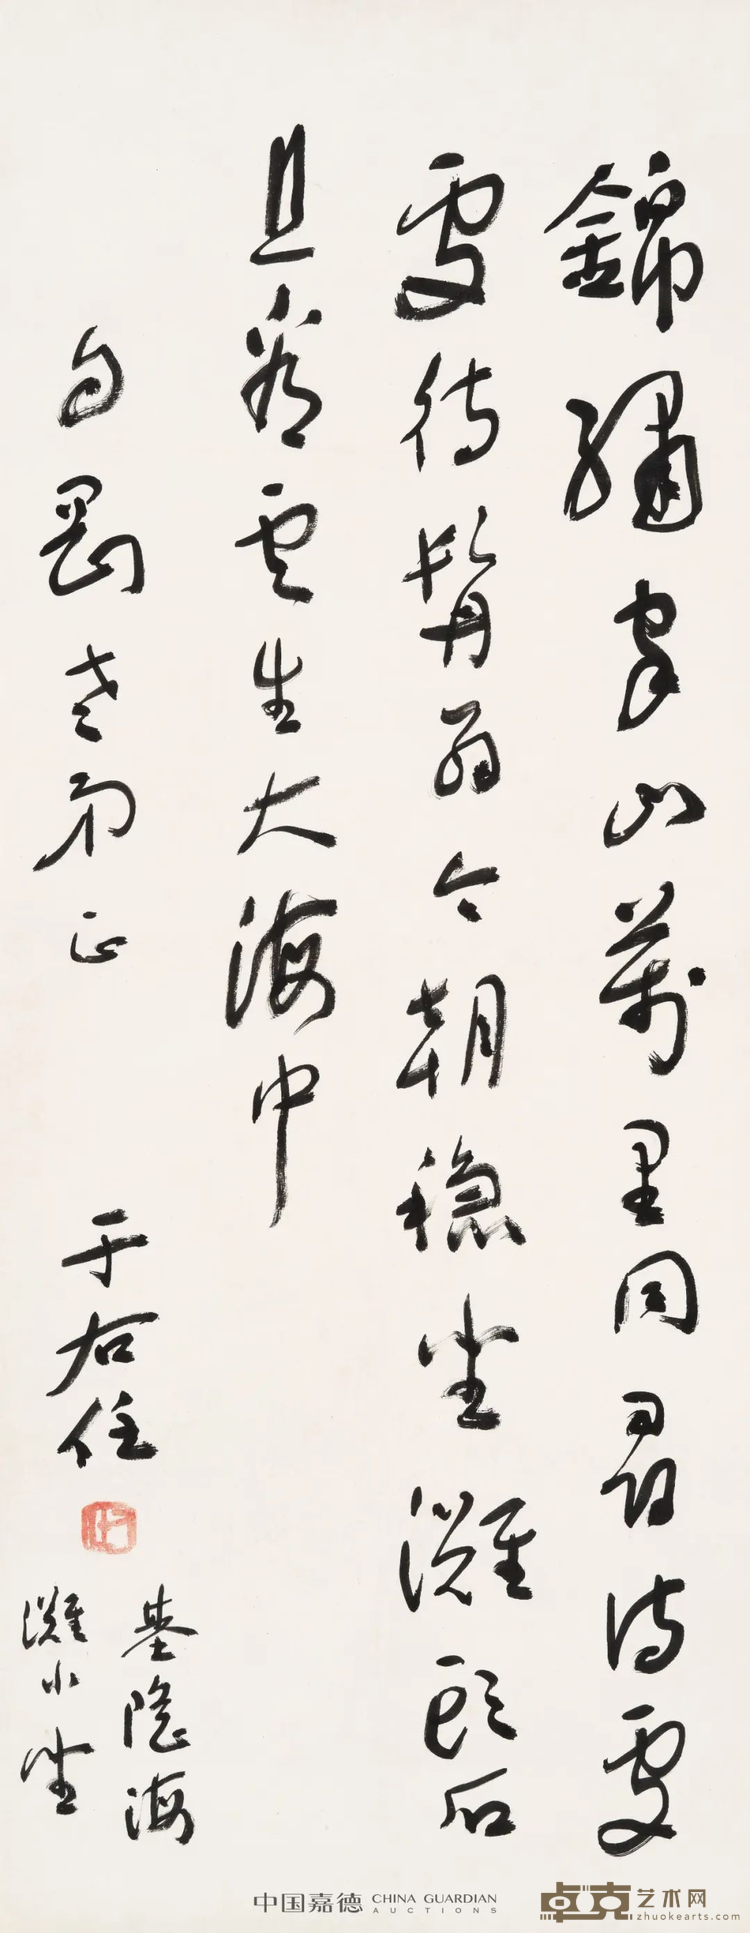 錦繡家山萬里同尋詩處
處待髯翁今朝穩坐灘頭石
且看雲生大海中
自剛老弟正
于右任
基隆海
灘小坐
中国嘉德 CHINA GUARDIAN AUCTIONS
卓克艺术网 zhuokearts.com